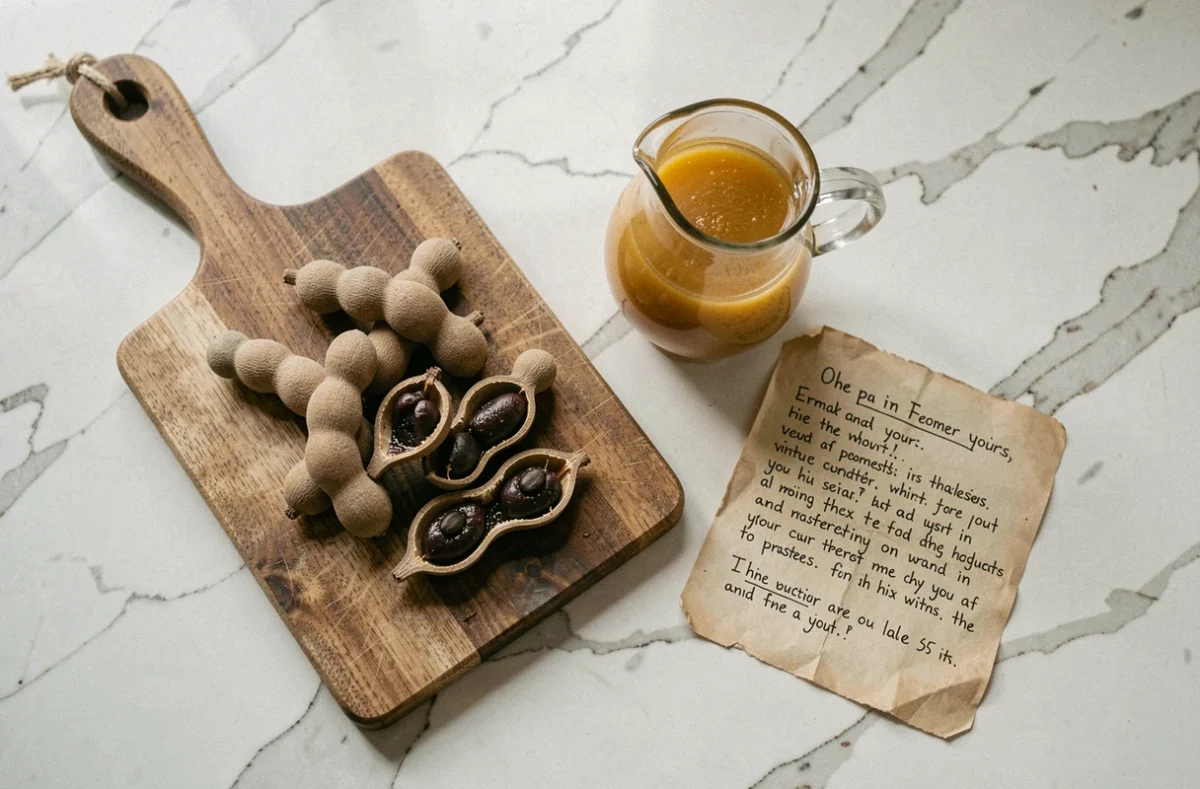 Ohe pa in Feomer yoirs,
Ermak and your:.
hie the whovrt!.
veud af pcomests: irs thalesies.
vintue cundtér. whint. fore jout
you his seiar? bat ad ysrt in
al moing thex te fod dhe hoguats
and rasferetiny on wand in
your cur therst me chy you af
to prastees. for ih hix witns. the
I hine vuctior are ou lale 55 its.
anid fne a yout.?